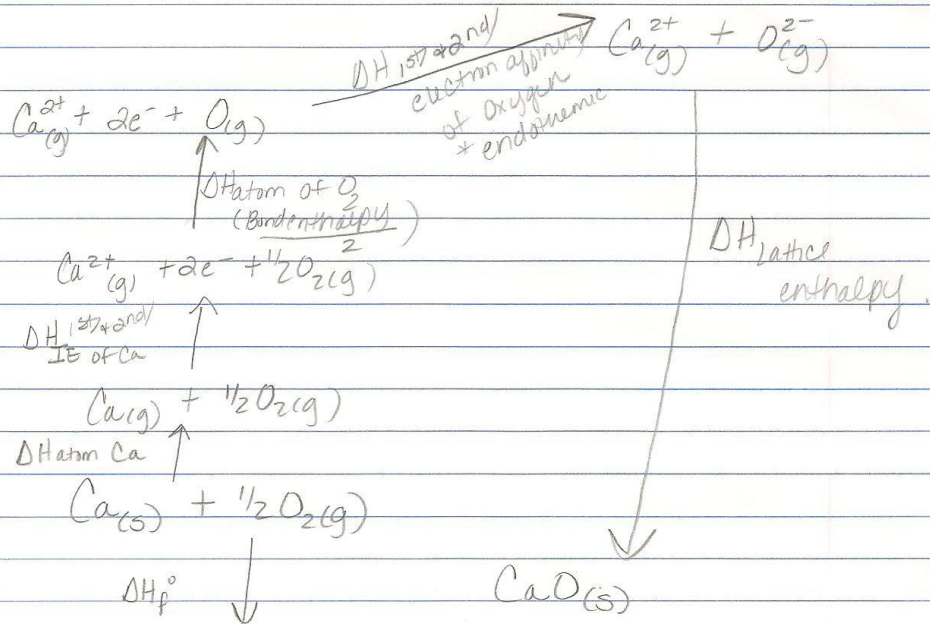 Ca²⁺(g) + O²⁻(g)
DH 1st & 2nd/
electron affinity
of Oxygen
* endothemic
Ca²⁺(g) + 2e⁻ + O(g)
DHatom of O₂
(Bondenthalpy/2)
Ca²⁺(g) + 2e⁻ + 1/2O₂(g)
DH Lattice
enthalpy.
DH 1st & 2nd/
IE of Ca
Ca(g) + 1/2O₂(g)
DHatom Ca
Ca(s) + 1/2O₂(g)
DHf°
CaO(s)